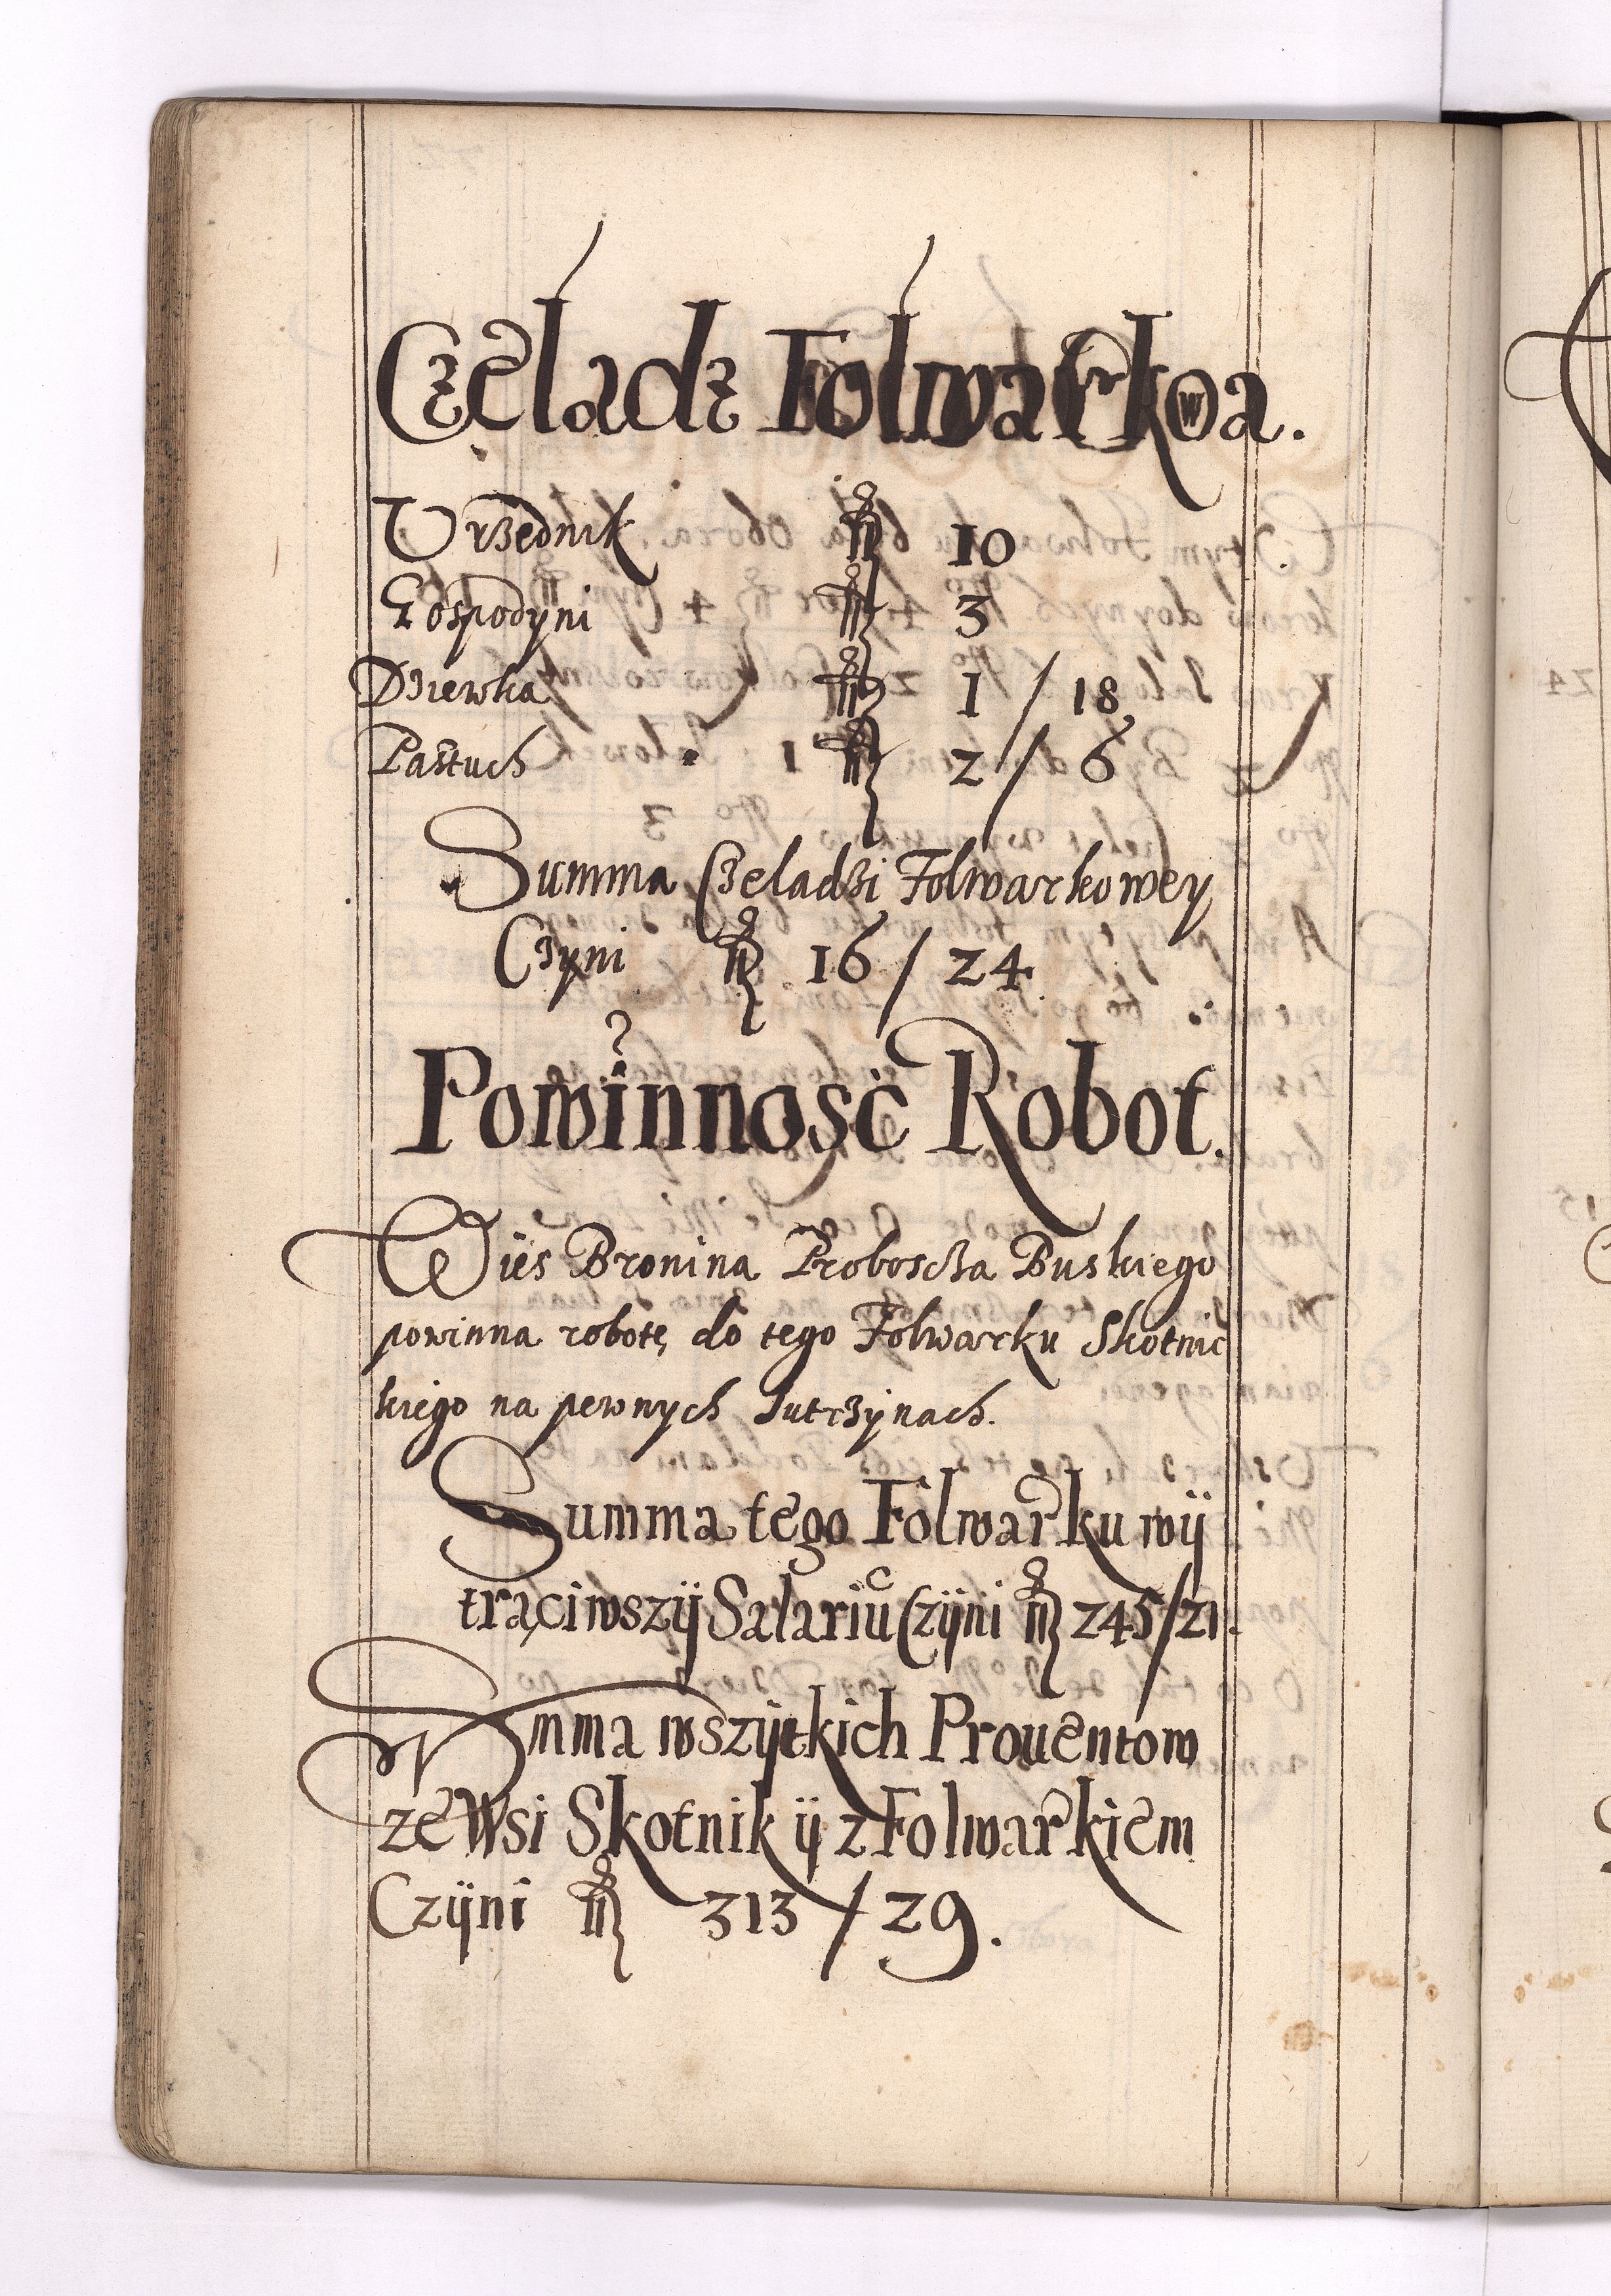 Czeladz Folwarkowa.
Vrzędnik ₥ 10
Gospodyni ₥ 3
Dziewka ₥ 1 / 18
Pastuch ₥ 2 / 6
Summa Czeladzi Folwarkowey
Czyni ₥ 16 / 24.
Powinność Robot.
Wies Bronina Proboscza Buskiego
powinna robotę do tego Folwarku Skotnic
kiego na pewnych Jutrzynach.
Summa tego Folwarku wÿ
trąciwszÿ Salariū Czÿni ₥ 245/21.
Summa wszÿtkich Prouentow
ze Wsi Skotnik ÿ z Folwarkiem
Czÿni ₥ 313 / 29.